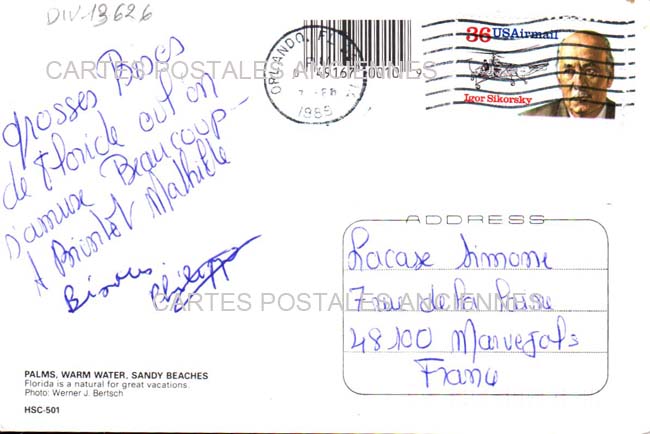 DIV-13626
grosses Bises
de Floride out on
s'amuse Beaucoup -
A Bientôt Mathilde
Bisous Philippe
CARTES POSTALES ANCIENNES
CARTES POSTALES ANCIENNES
ORLANDO, FL
1989
36 USAirmail
Igor Sikorsky
ADDRESS
Lacase Simone
7 rue de la
48100 Marvejols
France
PALMS, WARM WATER, SANDY BEACHES
Florida is a natural for great vacations.
Photo: Werner J. Bertsch
HSC-501